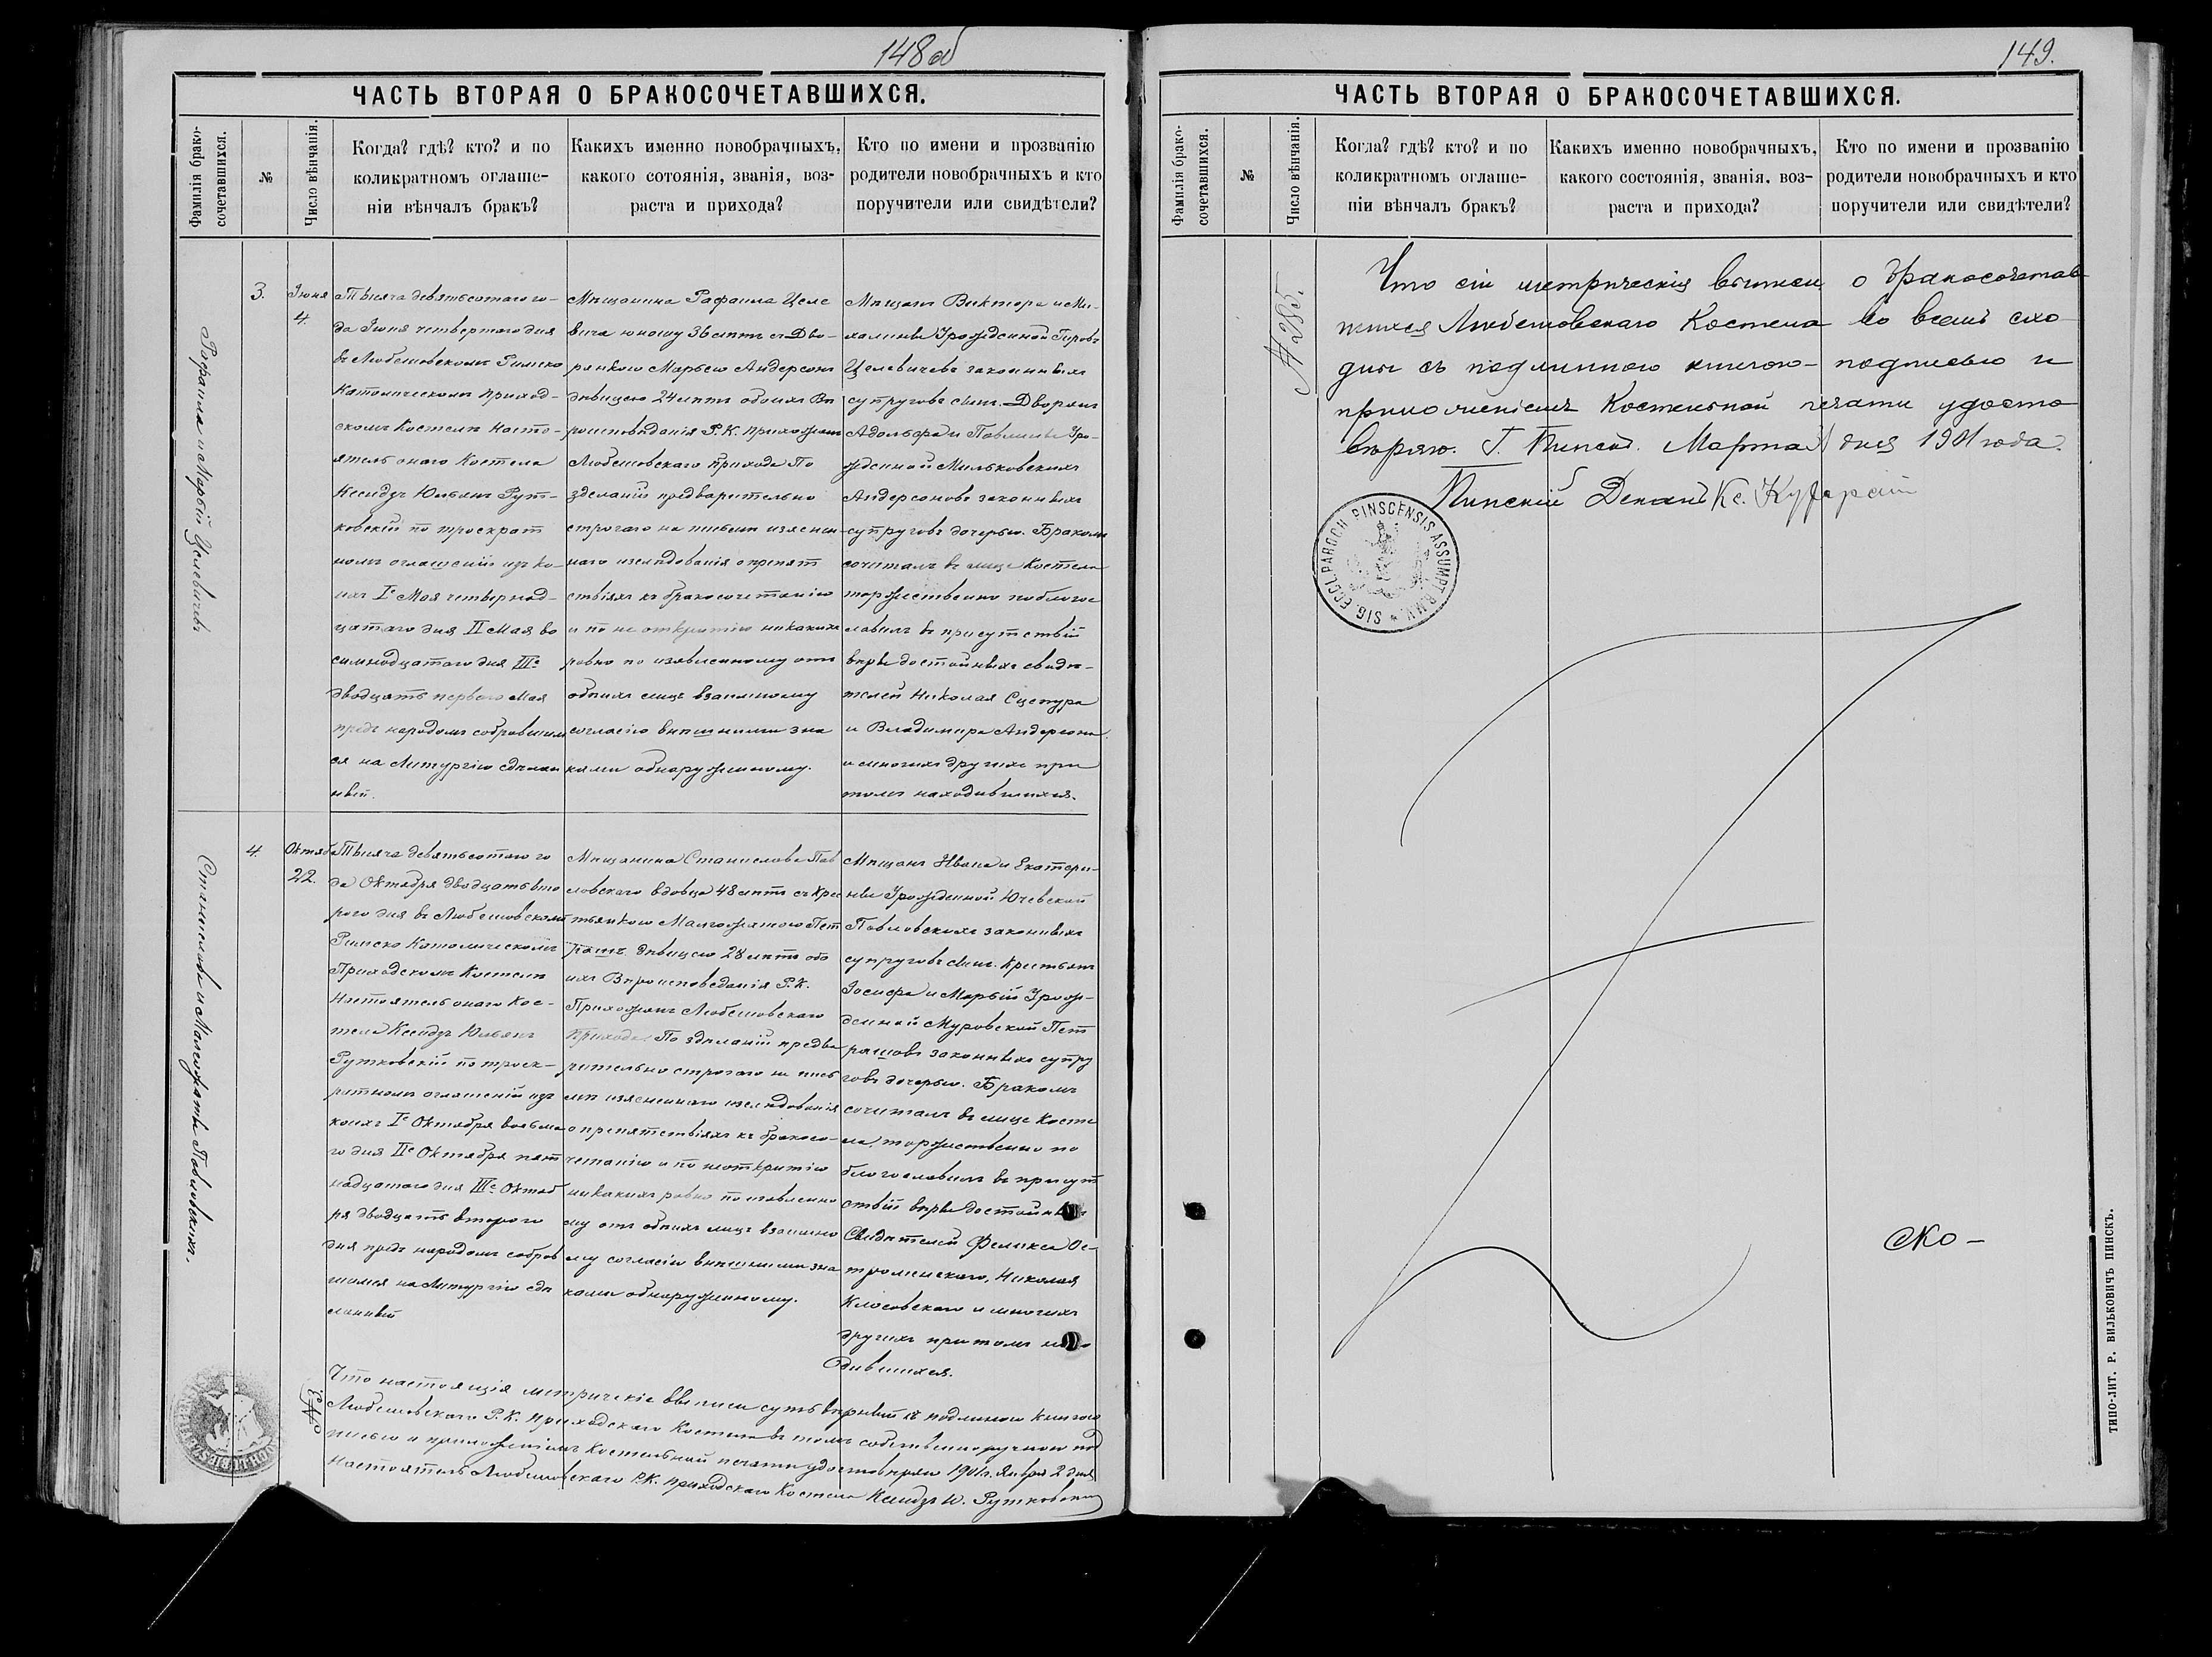 148 об
ЧАСТЬ ВТОРАЯ О БРАКОСОЧЕТАВШИХСЯ.
Фамилія брако-
сочетавшихся.
№
Число вѣнчанія.
Когда? гдѣ? кто? и по
коликратномъ оглаше-
ніи вѣнчалъ бракъ?
Какихъ именно новобрачныхъ,
какого сотоянія, званія, воз-
раста и прихода?
Кто по имени и прозванію
родители новобрачныхъ и кто
поручители или свидѣтели?
Рафаила и Марьій Целевичевъ
3.
Іюня
4.
Тысяча девятьсотаго го-
да Іюня четвертаго дня
въ Любешовскомъ Римско
Католическомъ приход-
скомъ Костелѣ Насто-
ятель онаго Костела
Ксендзъ Юльянъ Рут-
ковскій по троекрат
номъ оглашеній изъ ко-
ихъ Iе Мая четырнад-
цатаго дня II Мая во
семнадцатаго дня IIIе
двадцать перваго Мая
предъ народомъ собравшим
ся на Литургію сдѣлан
ный.
Мѣщанина Рафаила Целе
вича юношу 36 лѣтъ съ Дво-
рянкою Марьею Андерсонъ
дѣвицею 24 лѣтъ обоихъ Вѣ
роисповѣданія Р.К. прихожан
Любешовскаго прихода По
зделаніи предварительно
строгаго на письмѣ изяснен-
наго изслѣдованія о препят
ствіяхъ къ бракосочетанію
и по не открытію никакихъ
ровно по изявленному отъ
обоихъ лицъ взаимному
согласію внѣшними зна
ками обнаруженному.
Мѣщанъ Виктора и Ми-
халины Урожденной Гировъ
Целевичевъ законныхъ
супруговъ сын. – Дворянъ
Адольфа и Павлины Уро-
жденной Мильковскихъ
Андерсоновъ законныхъ
супруговъ дочерью. Бракомъ
сочиталъ въ лице Костела
торжественно поблагос
ловилъ въ присутствій
вѣры достойныхъ свидѣ-
телей Николая Сцепура
и Владимира Андерсона
и многихъ другихъ при
томъ находившихся.
Станислава и Малгожаты Павловскихъ.
4.
Октяб
22.
Тысяча девятьсотаго го
да Октября двадцать вто
раго дня въ Любешовскомъ
Римско Католическомъ
Приходскомъ Костелѣ
Настоятель онаго Кос-
тела Ксендзъ Юльянъ
Рутковскій по троек-
ратномъ оглашеній изъ
коихъ Iе Октября восьма
го дня IIе Октября пят
надцатаго дня IIIе Октяб
ря двадцать втораго
дня предъ народомъ собрав
шимся на Литургію сдѣ
ланный
Мѣщанина Станислава Пав
ловскаго вдовца 48 лѣтъ съ Крес
тьянкою Малгожатою Пет
рашъ дѣвицею 28 лѣтъ обо
ихъ Вѣроисповеданія Р.К.
Прихожанъ Любешовскаго
Прихода. По здѣланіи предва
рительно строгаго на пись
мѣ изясненнаго изслѣдованія
о препятствіяхъ къ бракосо-
четанію и по неоткрытію
никакихъ ровно по изявленно
му отъ обоихъ лицъ взаимно
му согласію внѣшними зна
ками обнаруженному.
Мѣщанъ Ивана и Екатери-
ны Урожденной Ючевской
Павловскихъ законныхъ
супруговъ сын. Крестьянъ
Іосифа и Марьій Урож-
денной Муровской Пет
рашовъ законныхъ супру
говъ дочерью. Бракомъ
сочиталъ въ лице Косте
ла, торжественно по
благословилъ въ присут
ствій вѣры достойныхъ
Свидѣтелей Феликса Ос-
троменскаго, Николая
Клосовскаго и многихъ
другихъ притомъ нахо
дившихся.
№ 3
Что настоящія метричекіе выписи суть вѣрный съ подлинною книгою
Любешовскаго Р.К. приходскаго Костела въ томъ собственноручною под
писью и приложеніемъ Костельной печати удостовѣряю 1901 г. Января 2 дня
Настоятель Любешовскаго Р.К. приходскаго Костела Ксендзъ Ю. Рутковскій
149.
ЧАСТЬ ВТОРАЯ О БРАКОСОЧЕТАВШИХСЯ.
Фамилія брако-
сочетавшихся.
№
Число вѣнчанія.
Когда? гдѣ? кто? и по
коликратномъ оглаше-
ніи вѣнчалъ бракъ?
Какихъ именно новобрачныхъ,
какого состоянія, званія, воз-
раста и прихода?
Кто по имени и прозванію
родители новобрачныхъ и кто
поручители или свидѣтели?
№ 285.
Что сіи метрическія выписи о бракосочетав
шихся Любешовскаго Костела во всемъ схо
дны съ подлинною книгою – подписью и
приложеніемъ Костельной печати удосто
вѣряю. Г. Пинскъ. Марта дня 1901 года.
Пинскій Деканъ Кс.
SIG. ECCL. PAROCH PINSCENSIS ASSUMPT. B.M.V.
ско –
ТИПО-ЛИТ. Р. ВИЛЬКОВИЧЪ ПИНСКЪ.